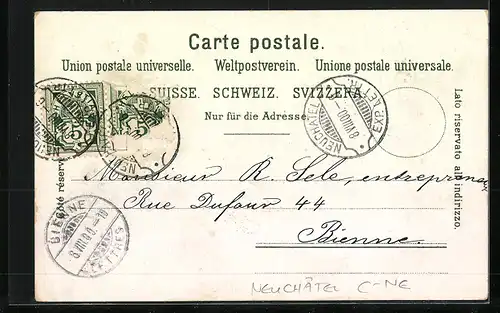 Carte postale.
Union postale universelle. Weltpostverein. Unione postale universale.
SUISSE. SCHWEIZ. SVIZZERA.
Nur für die Adresse.
Côté réservé
Lato riservato all'indirizzo.
NEUCHÂTEL
EXP. LETT.
BIENNE
LETTRES
5
5
Monsieur R. Sele, entrepreneur
Rue Dufour 44
Bienne.
NEUCHÂTEL C-NE